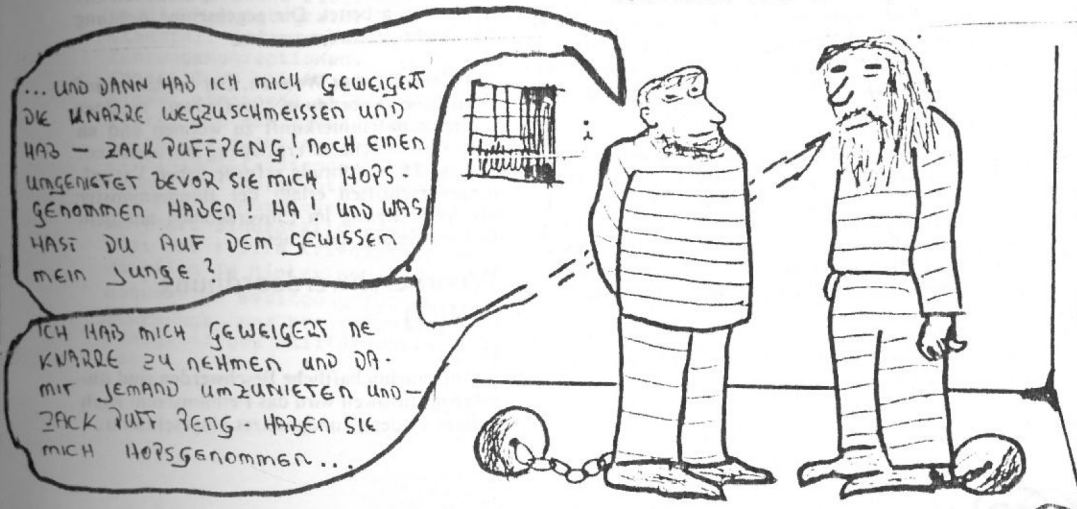 ... UND DANN HAB ICH MICH GEWEIGERT
DIE KNARRE WEGZUSCHMEISSEN UND
HAB – ZACK PUFFPENG! NOCH EINEN
UMGENIETET BEVOR SIE MICH HOPS-
GENOMMEN HABEN! HA! UND WAS
HAST DU AUF DEM GEWISSEN
MEIN JUNGE?
ICH HAB MICH GEWEIGERT NE
KNARRE ZU NEHMEN UND DA-
MIT JEMAND UMZUNIETEN UND –
ZACK PUFF PENG - HABEN SIE
MICH HOPSGENOMMEN...